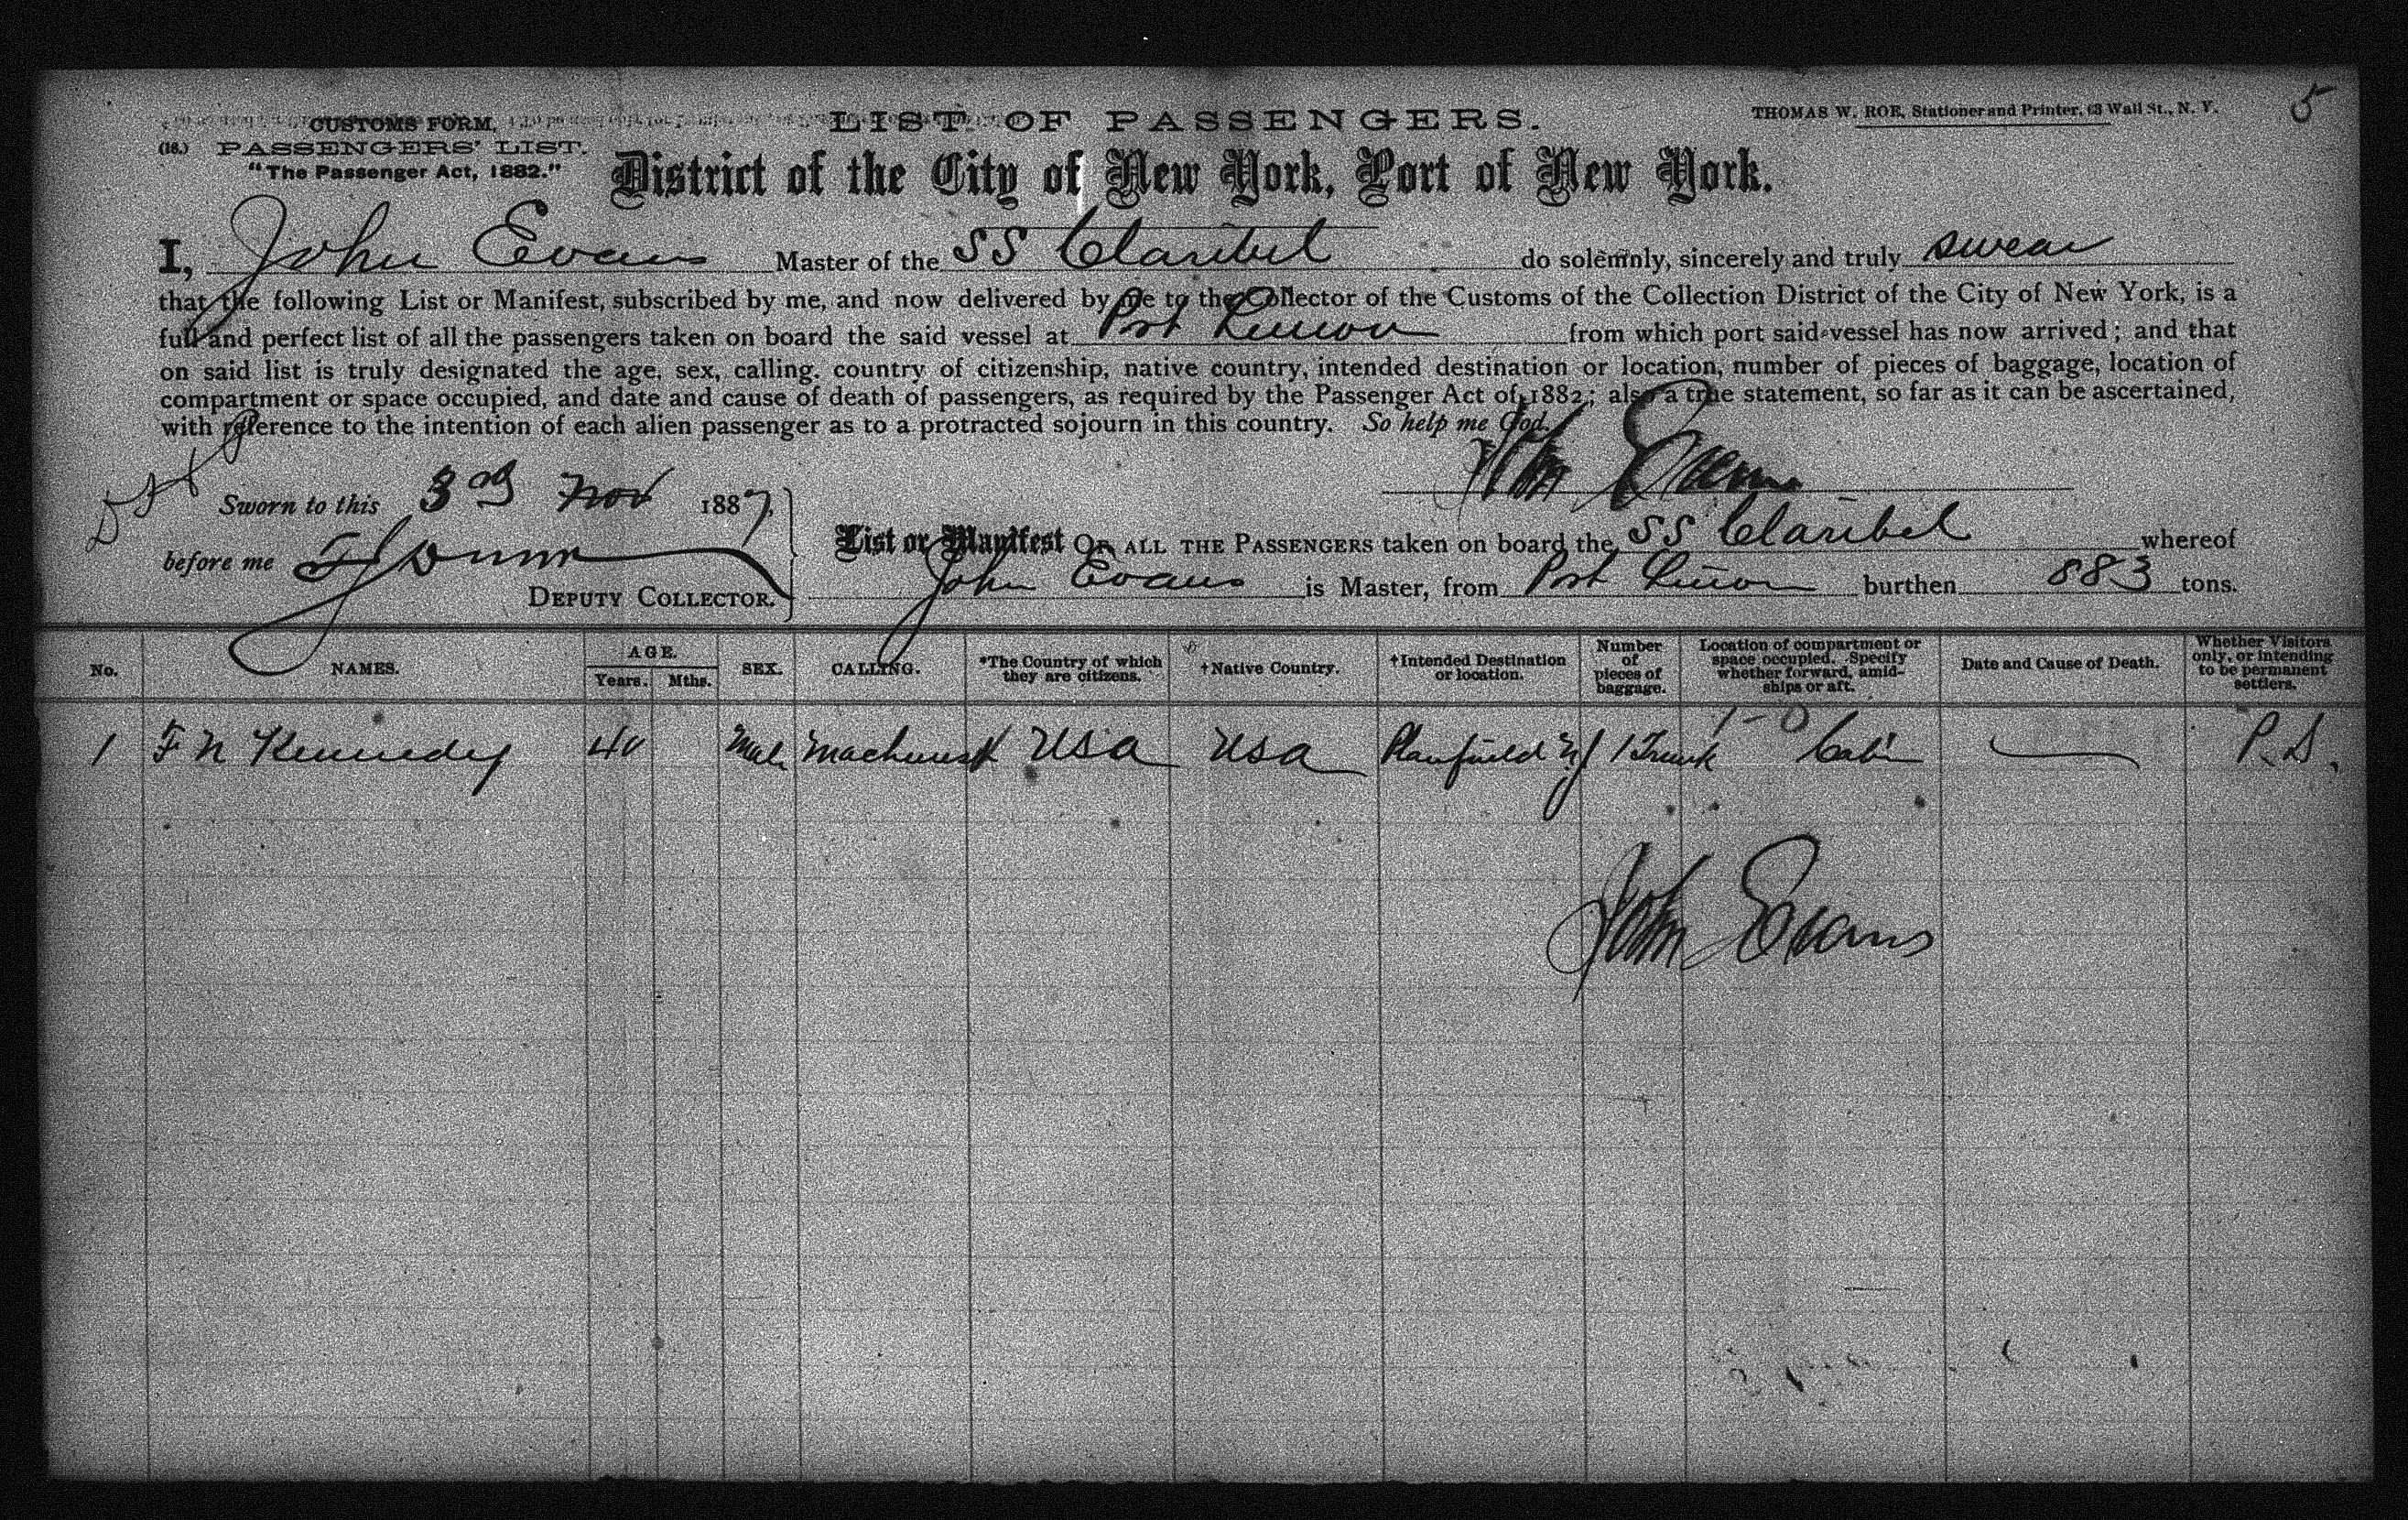 CUSTOMS FORM,
(16.) PASSENGERS' LIST.
"The Passenger Act, 1882."
LIST OF PASSENGERS.
THOMAS W. ROE, Stationer and Printer, 63 Wall St., N. Y.
5
District of the City of New York, Port of New York.
I, John Evans Master of the SS Claribel do solemnly, sincerely and truly swear
that the following List or Manifest, subscribed by me, and now delivered by me to the Collector of the Customs of the Collection District of the City of New York, is a
full and perfect list of all the passengers taken on board the said vessel at Port Limon from which port said vessel has now arrived; and that
on said list is truly designated the age, sex, calling, country of citizenship, native country, intended destination or location, number of pieces of baggage, location of
compartment or space occupied, and date and cause of death of passengers, as required by the Passenger Act of 1882; also a true statement, so far as it can be ascertained,
with reference to the intention of each alien passenger as to a protracted sojourn in this country. So help me God.
John Evans
Sworn to this 3rd Nov 1887,
before me
DEPUTY COLLECTOR.
List or Manifest OF ALL THE PASSENGERS taken on board the SS Claribel whereof
John Evans is Master, from Port Limon burthen 883 tons.
No. NAMES. AGE. Years. Mths. SEX. CALLING. *The Country of which they are citizens. †Native Country. †Intended Destination or location. Number of pieces of baggage. Location of compartment or space occupied. Specify whether forward, amidships or aft. Date and Cause of Death. Whether Visitors only, or intending to be permanent settlers.
1-0
1 F N Kennedy 40 Male Machinist USA USA Plainfield NJ 1 Trunk Cabin P.S.
John Evans